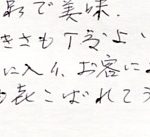 で美味.
きさも丁度よい
に入り、お客に
も喜こばれてう